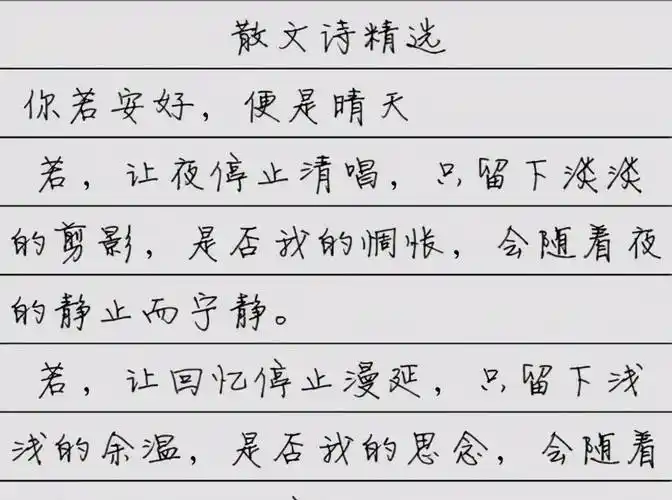 散文诗精选
你若安好，便是晴天
若，让夜停止清唱，只留下淡淡
的剪影，是否我的惆怅，会随着夜
的静止而宁静。
若，让回忆停止漫延，只留下浅
浅的余温，是否我的思念，会随着